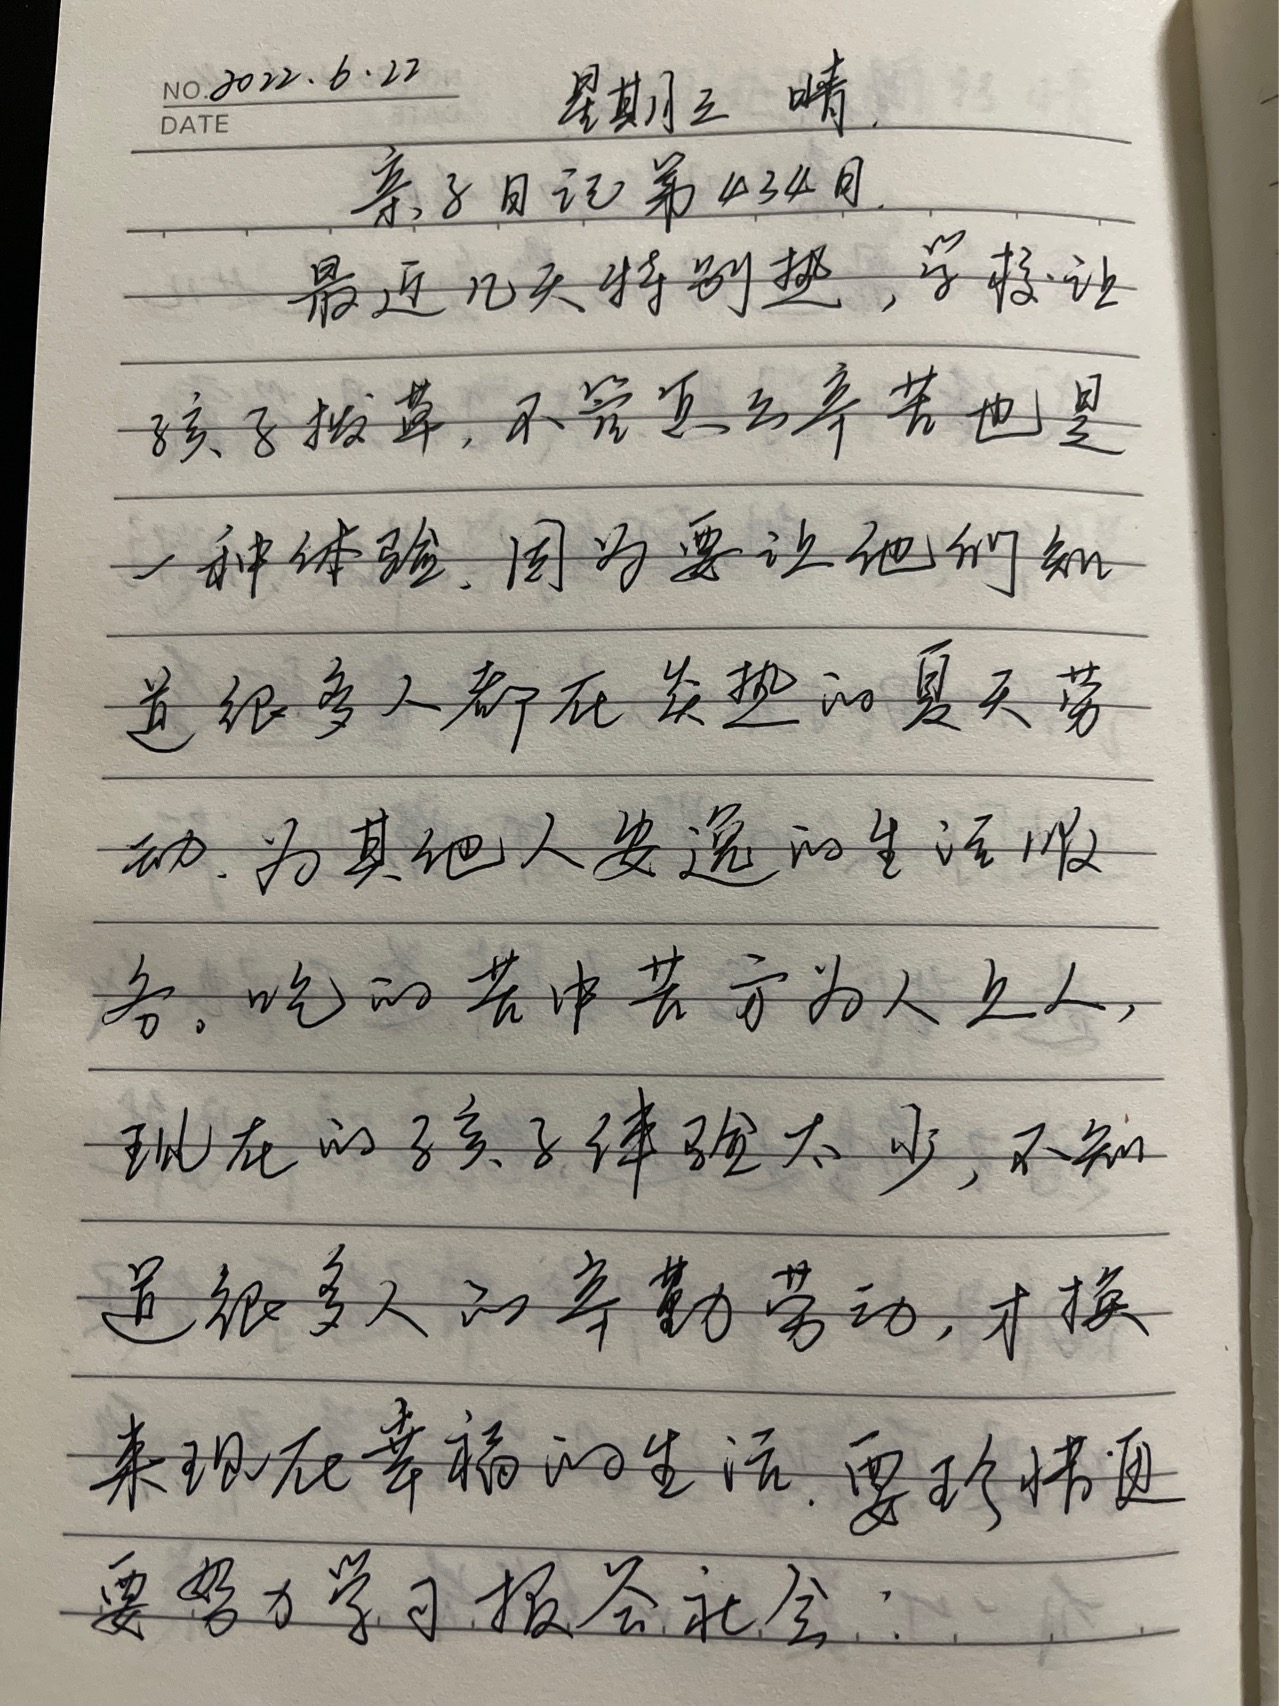 NO. 2022.6.22
DATE
星期三 晴.
亲子日记第434日.
最近几天特别热,学校让
孩子拔草,不管怎么辛苦也是
一种体验.因为要让他们知
道很多人都在炎热的夏天劳
动.为其他人安逸的生活服
务。吃的苦中苦方为人上人,
现在的孩子体验太少,不知
道很多人的辛勤劳动,才换
来现在幸福的生活.要珍惜更
要努力学习报答社会: